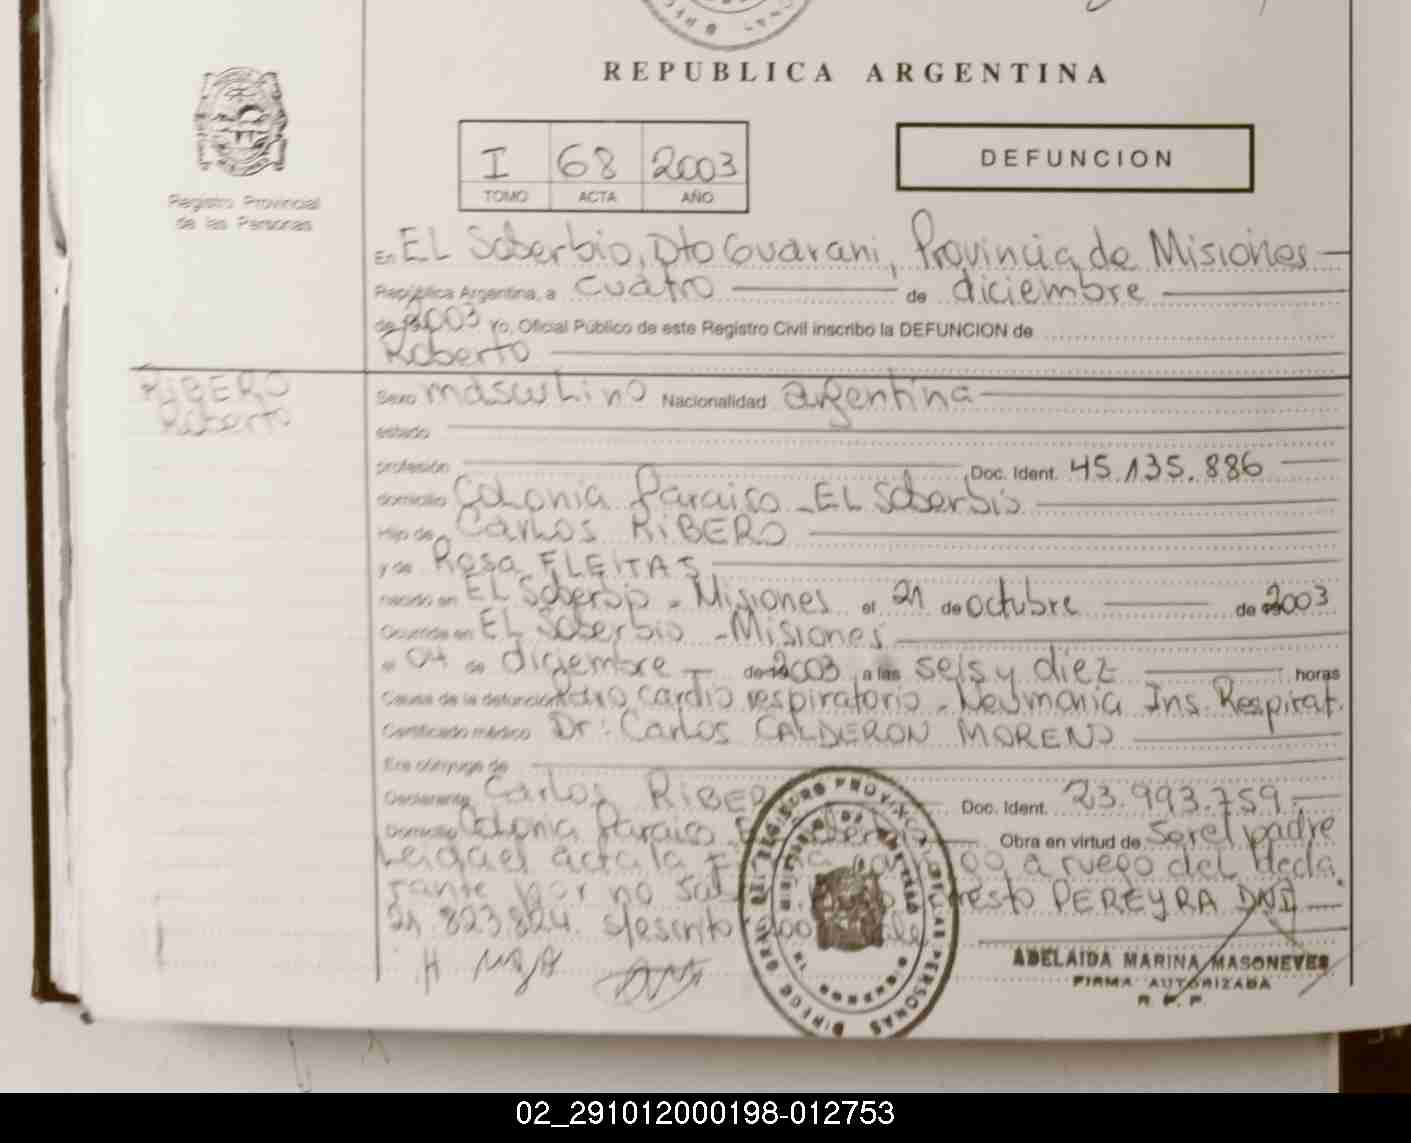 REPUBLICA ARGENTINA
I 68 2003
TOMO ACTA AÑO
DEFUNCION
Registro Provincial
de las Personas
En EL Soberbio, Dto Guarani, Provincia de Misiones
República Argentina, a cuatro de diciembre
de 2003 Yo, Oficial Público de este Registro Civil inscribo la DEFUNCION de
Roberto
RIBERO
Roberto
Sexo masculino Nacionalidad argentina
estado
profesión Doc. Ident. 45.135.886
domicilio Colonia Paraiso - EL Soberbio
Hijo de Carlos RIBERO
y de Rosa FLEITAS
nacido en EL Soberbio - Misiones el 21 de octubre de 2003
Ocurrida en EL Soberbio - Misiones
el 04 de diciembre de 2003 a las seis y diez horas
Causa de la defunción Paro cardio respiratorio - Neumonia Ins. Respirat.
Certificado médico Dr: Carlos CALDERON MORENO
Era cónyuge de
Declarante Carlos RIBER Doc. Ident. 23.993.759
Domicilio Colonia Paraiso Obra en virtud de Ser el padre
acta la a ruego del decla
rante por no PEREYRA DNI
21.823.824. s/escrito
ADELAIDA MARINA MASONEVES
FIRMA AUTORIZADA
R. P. P.
02_291012000198-012753